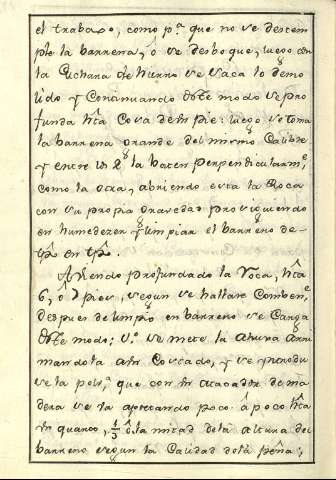 el trabaxo, como pª que no se destem
ple la barrena, ó se desboque, luego con
la Cuchara de hierro se saca lo demo
lido y Continuando deste modo se pro
funda hta Cosa de un pie: luego se toma
la barrena grande del mismo Calibre
y entre los 2os la hacen perpendicularmte
como la otra, abriendo esta la Roca
con su propia gravedad prosiguiendo
en humedezer y limpiar el barreno de
tpo en tpo.
Aviendo profundado la Roca, hta
6, ó 7 pies, segun se hallare Combente
despues de limpio en barreno se Carga
deste modo; 1º se mete la Abuxa arri
mandola a un Costado, y se introdu
se la polvª que con un atacador de ma
dera se va apretando poco â poco hta
un quarto, 1/3 ô la mitad dela altura del
barreno segun la Calidad dela peña;